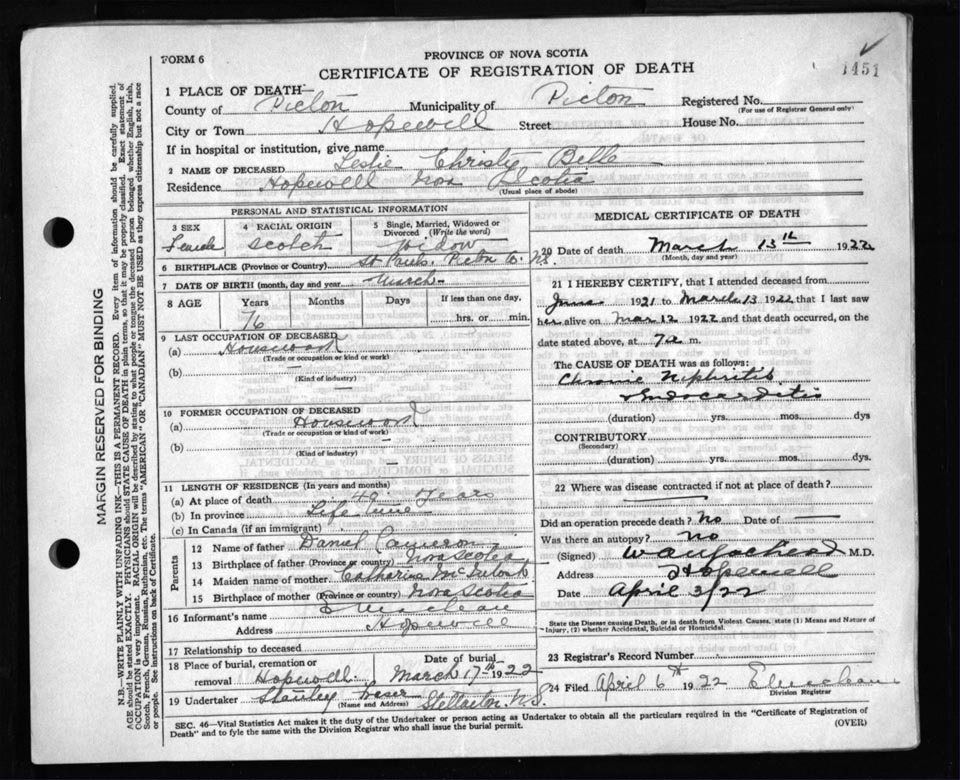 1451
FORM 6
PROVINCE OF NOVA SCOTIA
CERTIFICATE OF REGISTRATION OF DEATH
1 PLACE OF DEATH—
County of Picton Municipality of Picton Registered No.
(For use of Registrar General only)
City or Town Hopewell Street House No.
If in hospital or institution, give name
2 NAME OF DECEASED Leslie Christy Bell
Residence Hopewell Nova Scotia
(Usual place of abode)
PERSONAL AND STATISTICAL INFORMATION
3 SEX 4 RACIAL ORIGIN 5 Single, Married, Widowed or Divorced (Write the word)
Female Scotch Widow
6 BIRTHPLACE (Province or Country) St Pauls. Picton Co. N.S.
7 DATE OF BIRTH (month, day and year) March—
8 AGE Years Months Days If less than one day,
76 hrs. or min.
9 LAST OCCUPATION OF DECEASED
(a) Housework
(Trade or occupation or kind or work)
(b) —
(Kind of industry)
10 FORMER OCCUPATION OF DECEASED
(a) Housework
(Trade or occupation or kind of work)
(b) —
(Kind of industry)
11 LENGTH OF RESIDENCE (In years and months)
(a) At place of death 40 Years
(b) In province Life time
(c) In Canada (if an immigrant)
Parents
12 Name of father Daniel Cameron
13 Birthplace of father (Province or country) Nova Scotia
14 Maiden name of mother Catharine
15 Birthplace of mother (Province or country) Nova Scotia
16 Informant's name E Maclean
Address Hopewell
17 Relationship to deceased
18 Place of burial, cremation or removal Hopewell Date of burial March 17th 1922
19 Undertaker Stanley Fraser Stellarton. N.S.
(Name and Address)
MEDICAL CERTIFICATE OF DEATH
20 Date of death March 13th 1922
(Month, day and year)
21 I HEREBY CERTIFY, that I attended deceased from
1921 to March 13 1922 that I last saw
her alive on Mar 12 1922 and that death occurred, on the
date stated above, at 7 a m.
The CAUSE OF DEATH was as follows:
Chronic Nephritis
Endocarditis
(duration) yrs. mos. dys
CONTRIBUTORY
(Secondary)
(duration) yrs. mos. dys.
22 Where was disease contracted if not at place of death?
Did an operation precede death? No Date of —
Was there an autopsy? No
(Signed) M.D.
Address Hopewell
Date April 3/22
State the Disease causing Death, or in death from Violent Causes, state (1) Means and Nature of Injury, (2) whether Accidental, Suicidal or Homicidal.
23 Registrar's Record Number
24 Filed April 6th 1922 E Maclean
Division Registrar
SEC. 46—Vital Statistics Act makes it the duty of the Undertaker or person acting as Undertaker to obtain all the particulars required in the "Certificate of Registration of
Death" and to fyle the same with the Division Registrar who shall issue the burial permit.
(OVER)
MARGIN RESERVED FOR BINDING
N.B.—WRITE PLAINLY WITH UNFADING INK—THIS IS A PERMANENT RECORD. Every item of information should be carefully supplied.
AGE should be stated EXACTLY. PHYSICIANS should STATE CAUSE OF DEATH in plain terms, so that it may be properly classified. Exact statement of
OCCUPATION is very important. RACIAL ORIGIN will be described by stating to what people or tongue the deceased person belonged whether English, Irish,
Scotch, French, German, Russian, Ruthenian, etc. The terms "AMERICAN" OR "CANADIAN" MUST NOT BE USED as they express citizenship but not a race
or people. See instructions on back of Certificate.